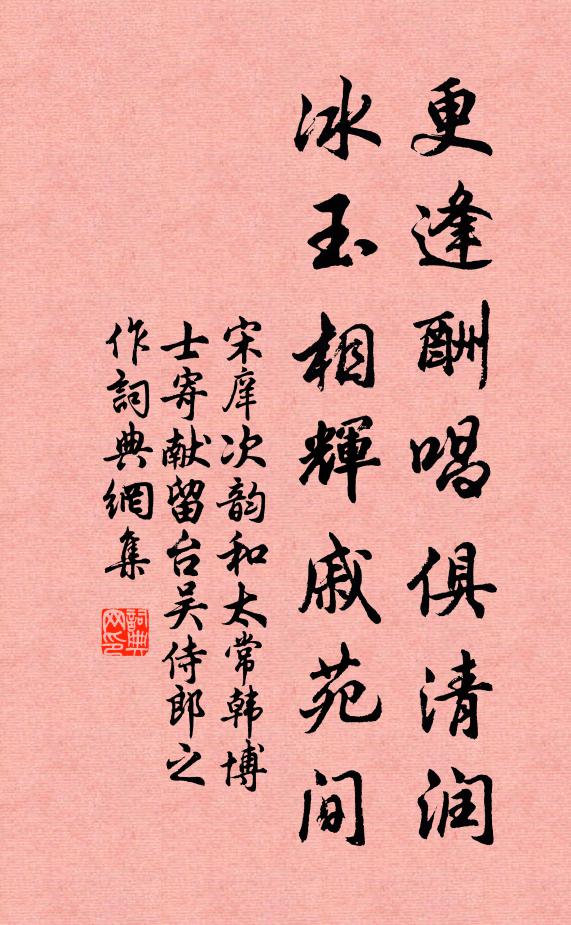 更逢酬唱俱清润
冰玉相輝戚苑间
宋庠次韵和太常韩博
士寄献留台吴侍郎之
作詞典網集
詞典网印